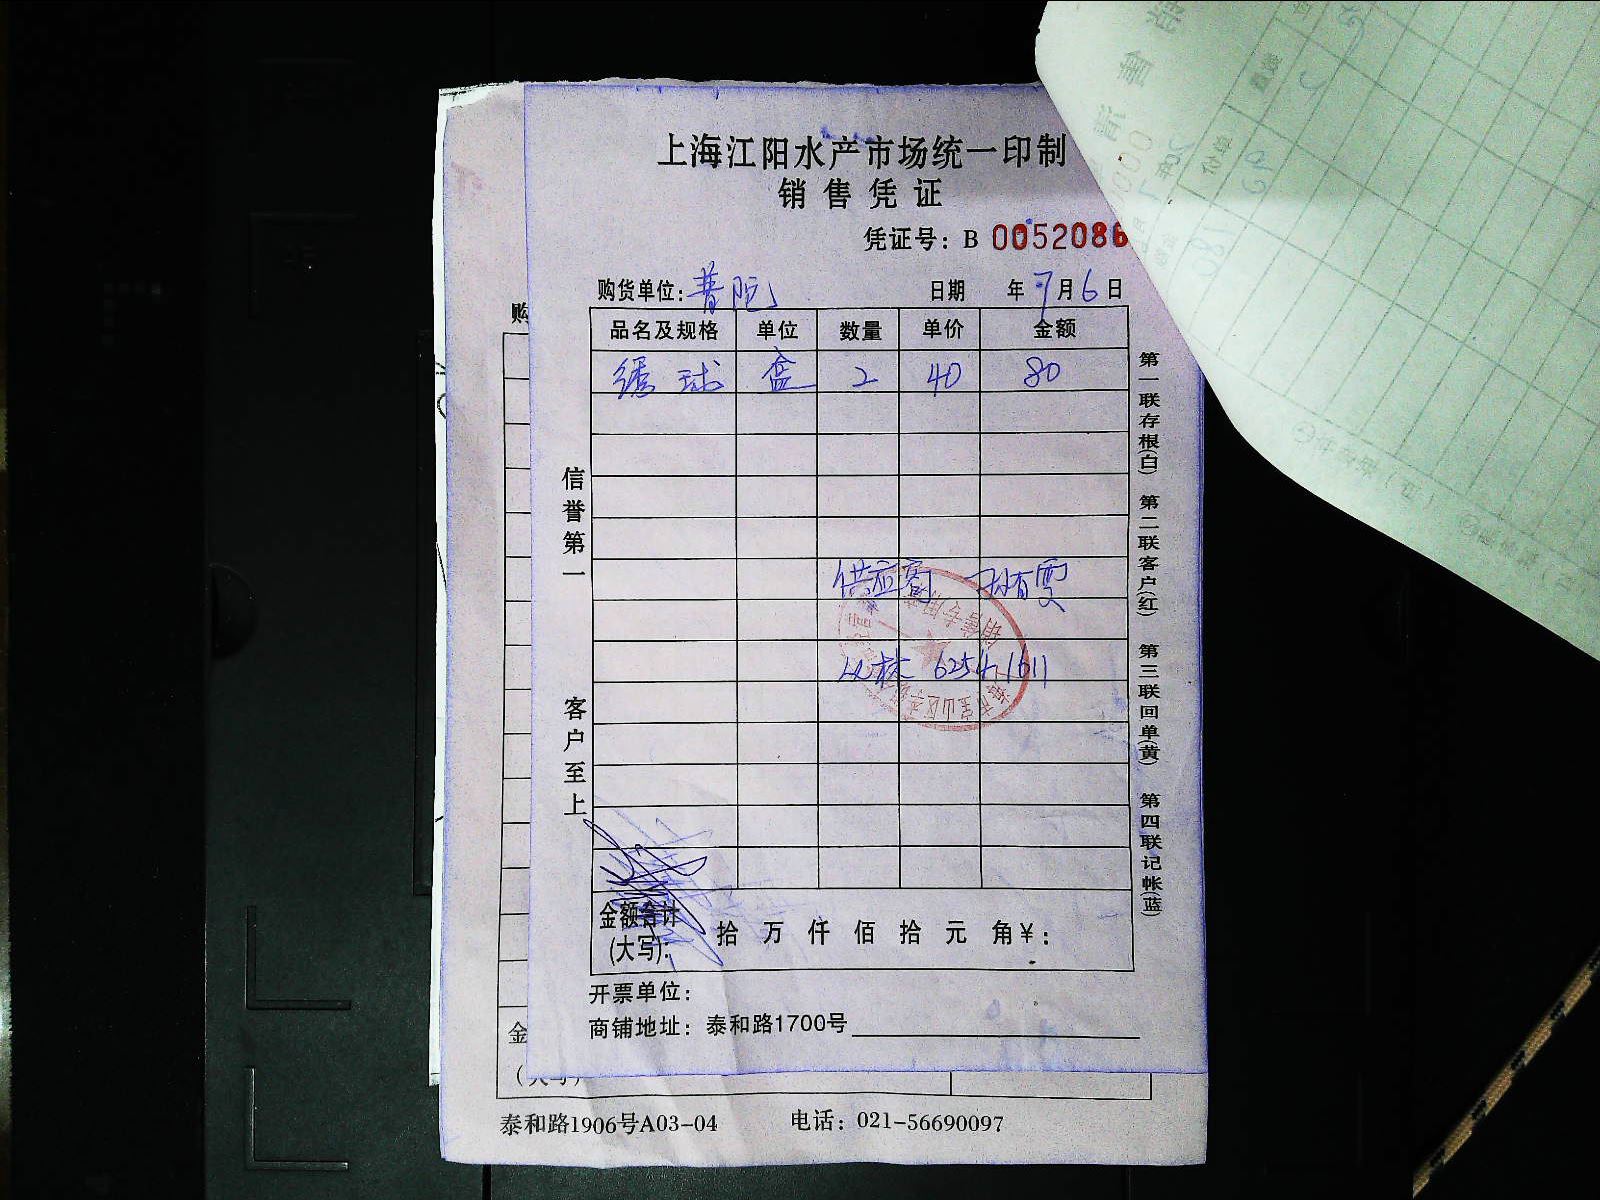 上海江阳水产市场统一印制
销售凭证
凭证号：B 0052086
购货单位：普陀
日期 年7月6日
品名及规格 单位 数量 单价 金额
绣球 盒 2 40 80
信誉第一
客户至上
供应商
6254 1611
金额合计
(大写)： 拾 万 仟 佰 拾 元 角 ¥：
开票单位：
商铺地址：泰和路1700号
第一联存根(白) 第二联客户(红) 第三联回单(黄) 第四联记帐(蓝)
购
金
泰和路1906号A03-04 电话：021-56690097